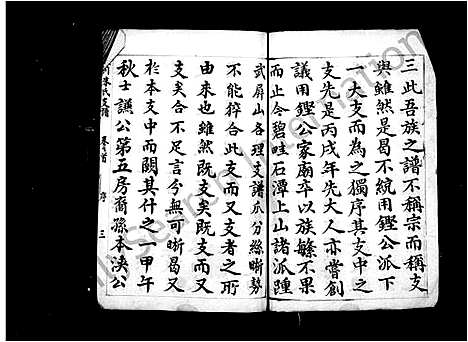 三此吾族之譜不稱宗而稱支
與雖然是曷不統用鏗公派下
一大支而為之獨序其支中之
支先是丙戌年先大人亦嘗創
議用鏗公家廟卒以族繁不果
而止令碧畦石潭上山諸派踵
武屏山各理支譜瓜分綫晰勢
不能猝合此支而又支者之所
由來也雖然既支矣既支而又
支矣合不足言今無可晰曷又
於本支中而闕其什之一甲午
秋士讌公第五房裔孫本浹公
支譜 卷首 序 三